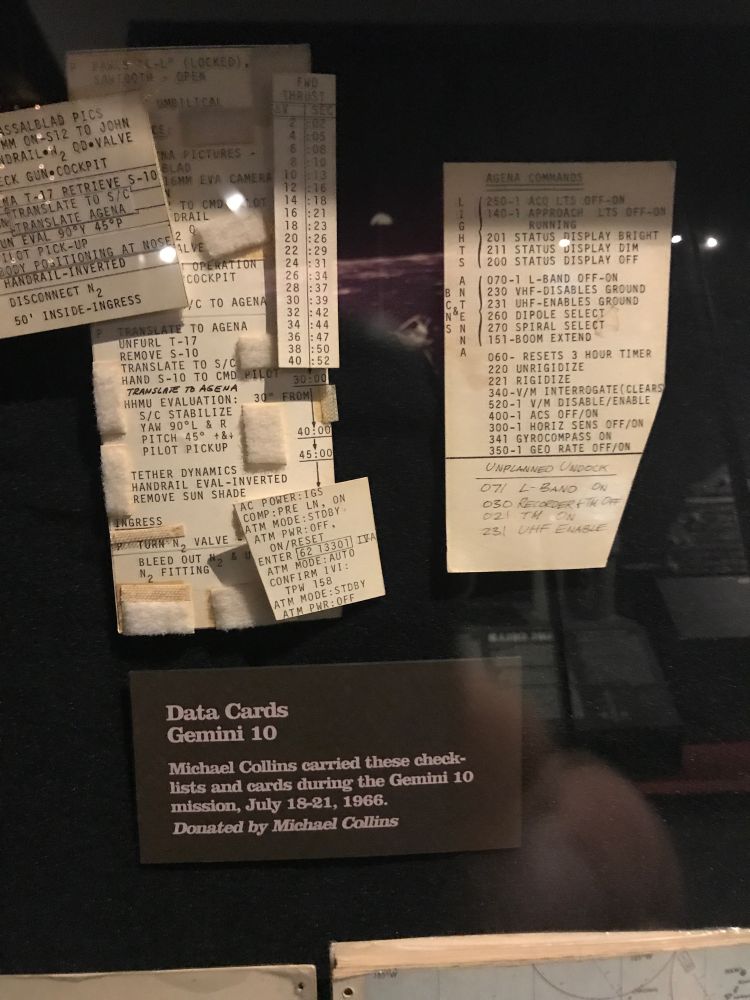 PAWLS "L-L" (LOCKED),
SAWTOOTH - OPEN
UMBILICAL
PICTURES -
16MM EVA CAMERA
TO CMD PILOT
OPERATION
COCKPIT
S/C TO AGENA
P TRANSLATE TO AGENA
UNFURL T-17
REMOVE S-10
TRANSLATE TO S/C
HAND S-10 TO CMD PILOT
TRANSLATE TO AGENA
HHMU EVALUATION: 30° FROM
S/C STABILIZE
YAW 90°L & R
PITCH 45° ↑&↓
PILOT PICKUP
TETHER DYNAMICS
HANDRAIL EVAL-INVERTED
REMOVE SUN SHADE
INGRESS
P TURN N2 VALVE -
BLEED OUT N2 &
N2 FITTING
30:00
40:00
45:00
HASSALBLAD PICS
MM ON-S12 TO JOHN
NDRAIL•N2 QD•VALVE
ECK GUN•COCKPIT
MA T-17 RETRIEVE S-10
TRANSLATE TO S/C
TRANSLATE AGENA
UN EVAL 90°Y 45°P
PILOT PICK-UP
BODY POSITIONING AT NOSE
HANDRAIL-INVERTED
DISCONNECT N2
50' INSIDE-INGRESS
FWD
THRUST
ΔV SEC
2 :02
4 :05
6 :08
8 :10
10 :13
12 :16
14 :18
16 :21
18 :23
20 :26
22 :29
24 :31
26 :34
28 :37
30 :39
32 :42
34 :44
36 :47
38 :50
40 :52
AC POWER:IGS
COMP:PRE LN, ON
ATM MODE:STDBY
ATM PWR:OFF,
ON/RESET
ENTER 62 13301 IVA
ATM MODE:AUTO
CONFIRM IVI:
TPW 158
ATM MODE:STDBY
ATM PWR:OFF
AGENA COMMANDS
LIGHTS
250-1 ACQ LTS OFF-ON
140-1 APPROACH LTS OFF-ON
RUNNING
201 STATUS DISPLAY BRIGHT
211 STATUS DISPLAY DIM
200 STATUS DISPLAY OFF
BCNS & ANTENNA
070-1 L-BAND OFF-ON
230 VHF-DISABLES GROUND
231 UHF-ENABLES GROUND
260 DIPOLE SELECT
270 SPIRAL SELECT
151-BOOM EXTEND
060- RESETS 3 HOUR TIMER
220 UNRIGIDIZE
221 RIGIDIZE
340-V/M INTERROGATE(CLEARS
520-1 V/M DISABLE/ENABLE
400-1 ACS OFF/ON
300-1 HORIZ SENS OFF/ON
341 GYROCOMPASS ON
350-1 GEO RATE OFF/ON
UNPLANNED UNDOCK
071 L-BAND ON
030 RECORDER & TM OFF
021 TM ON
231 UHF ENABLE
Data Cards
Gemini 10
Michael Collins carried these check-
lists and cards during the Gemini 10
mission, July 18-21, 1966.
Donated by Michael Collins